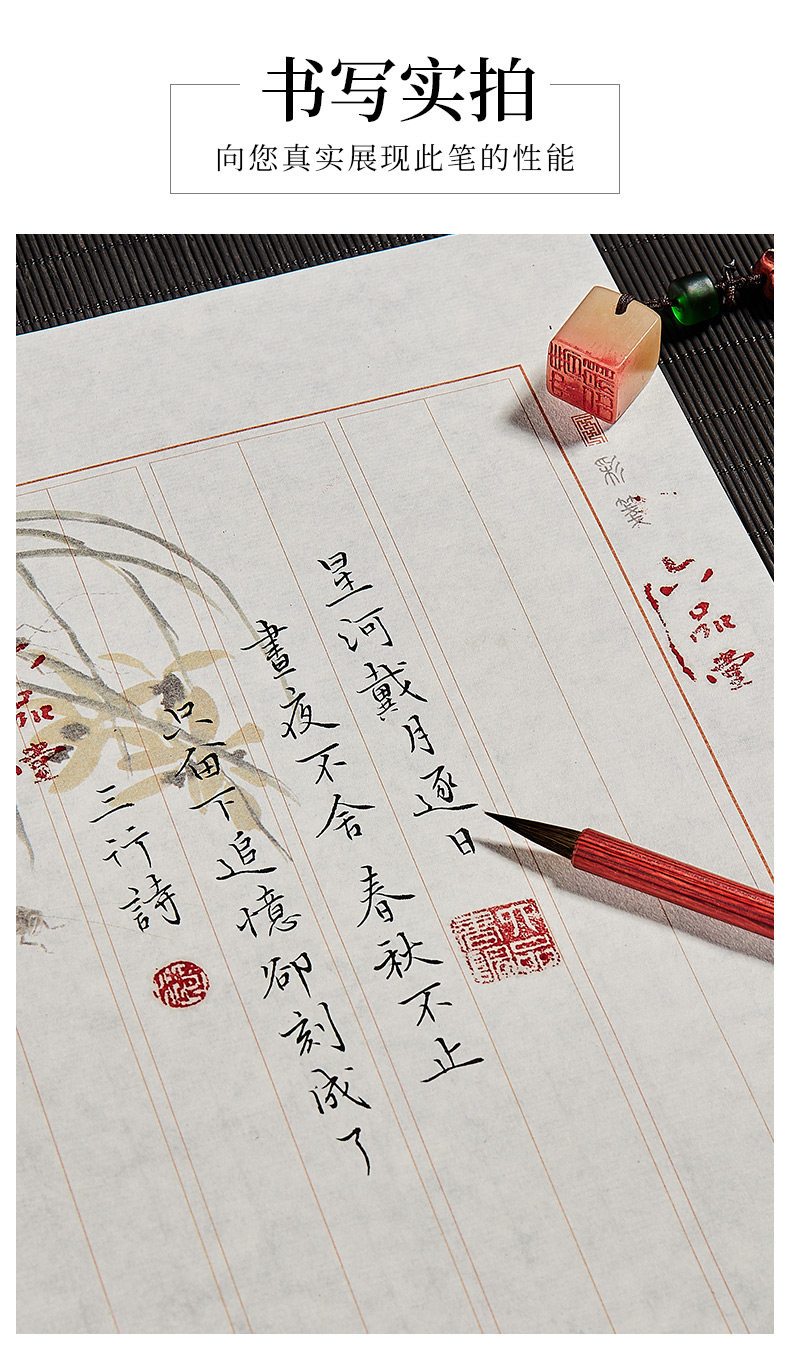 书写实拍
向您真实展现此笔的性能
六品堂
星河戴月逐日
晝夜不舍春秋不止
只留下追憶卻刻成了
三行詩